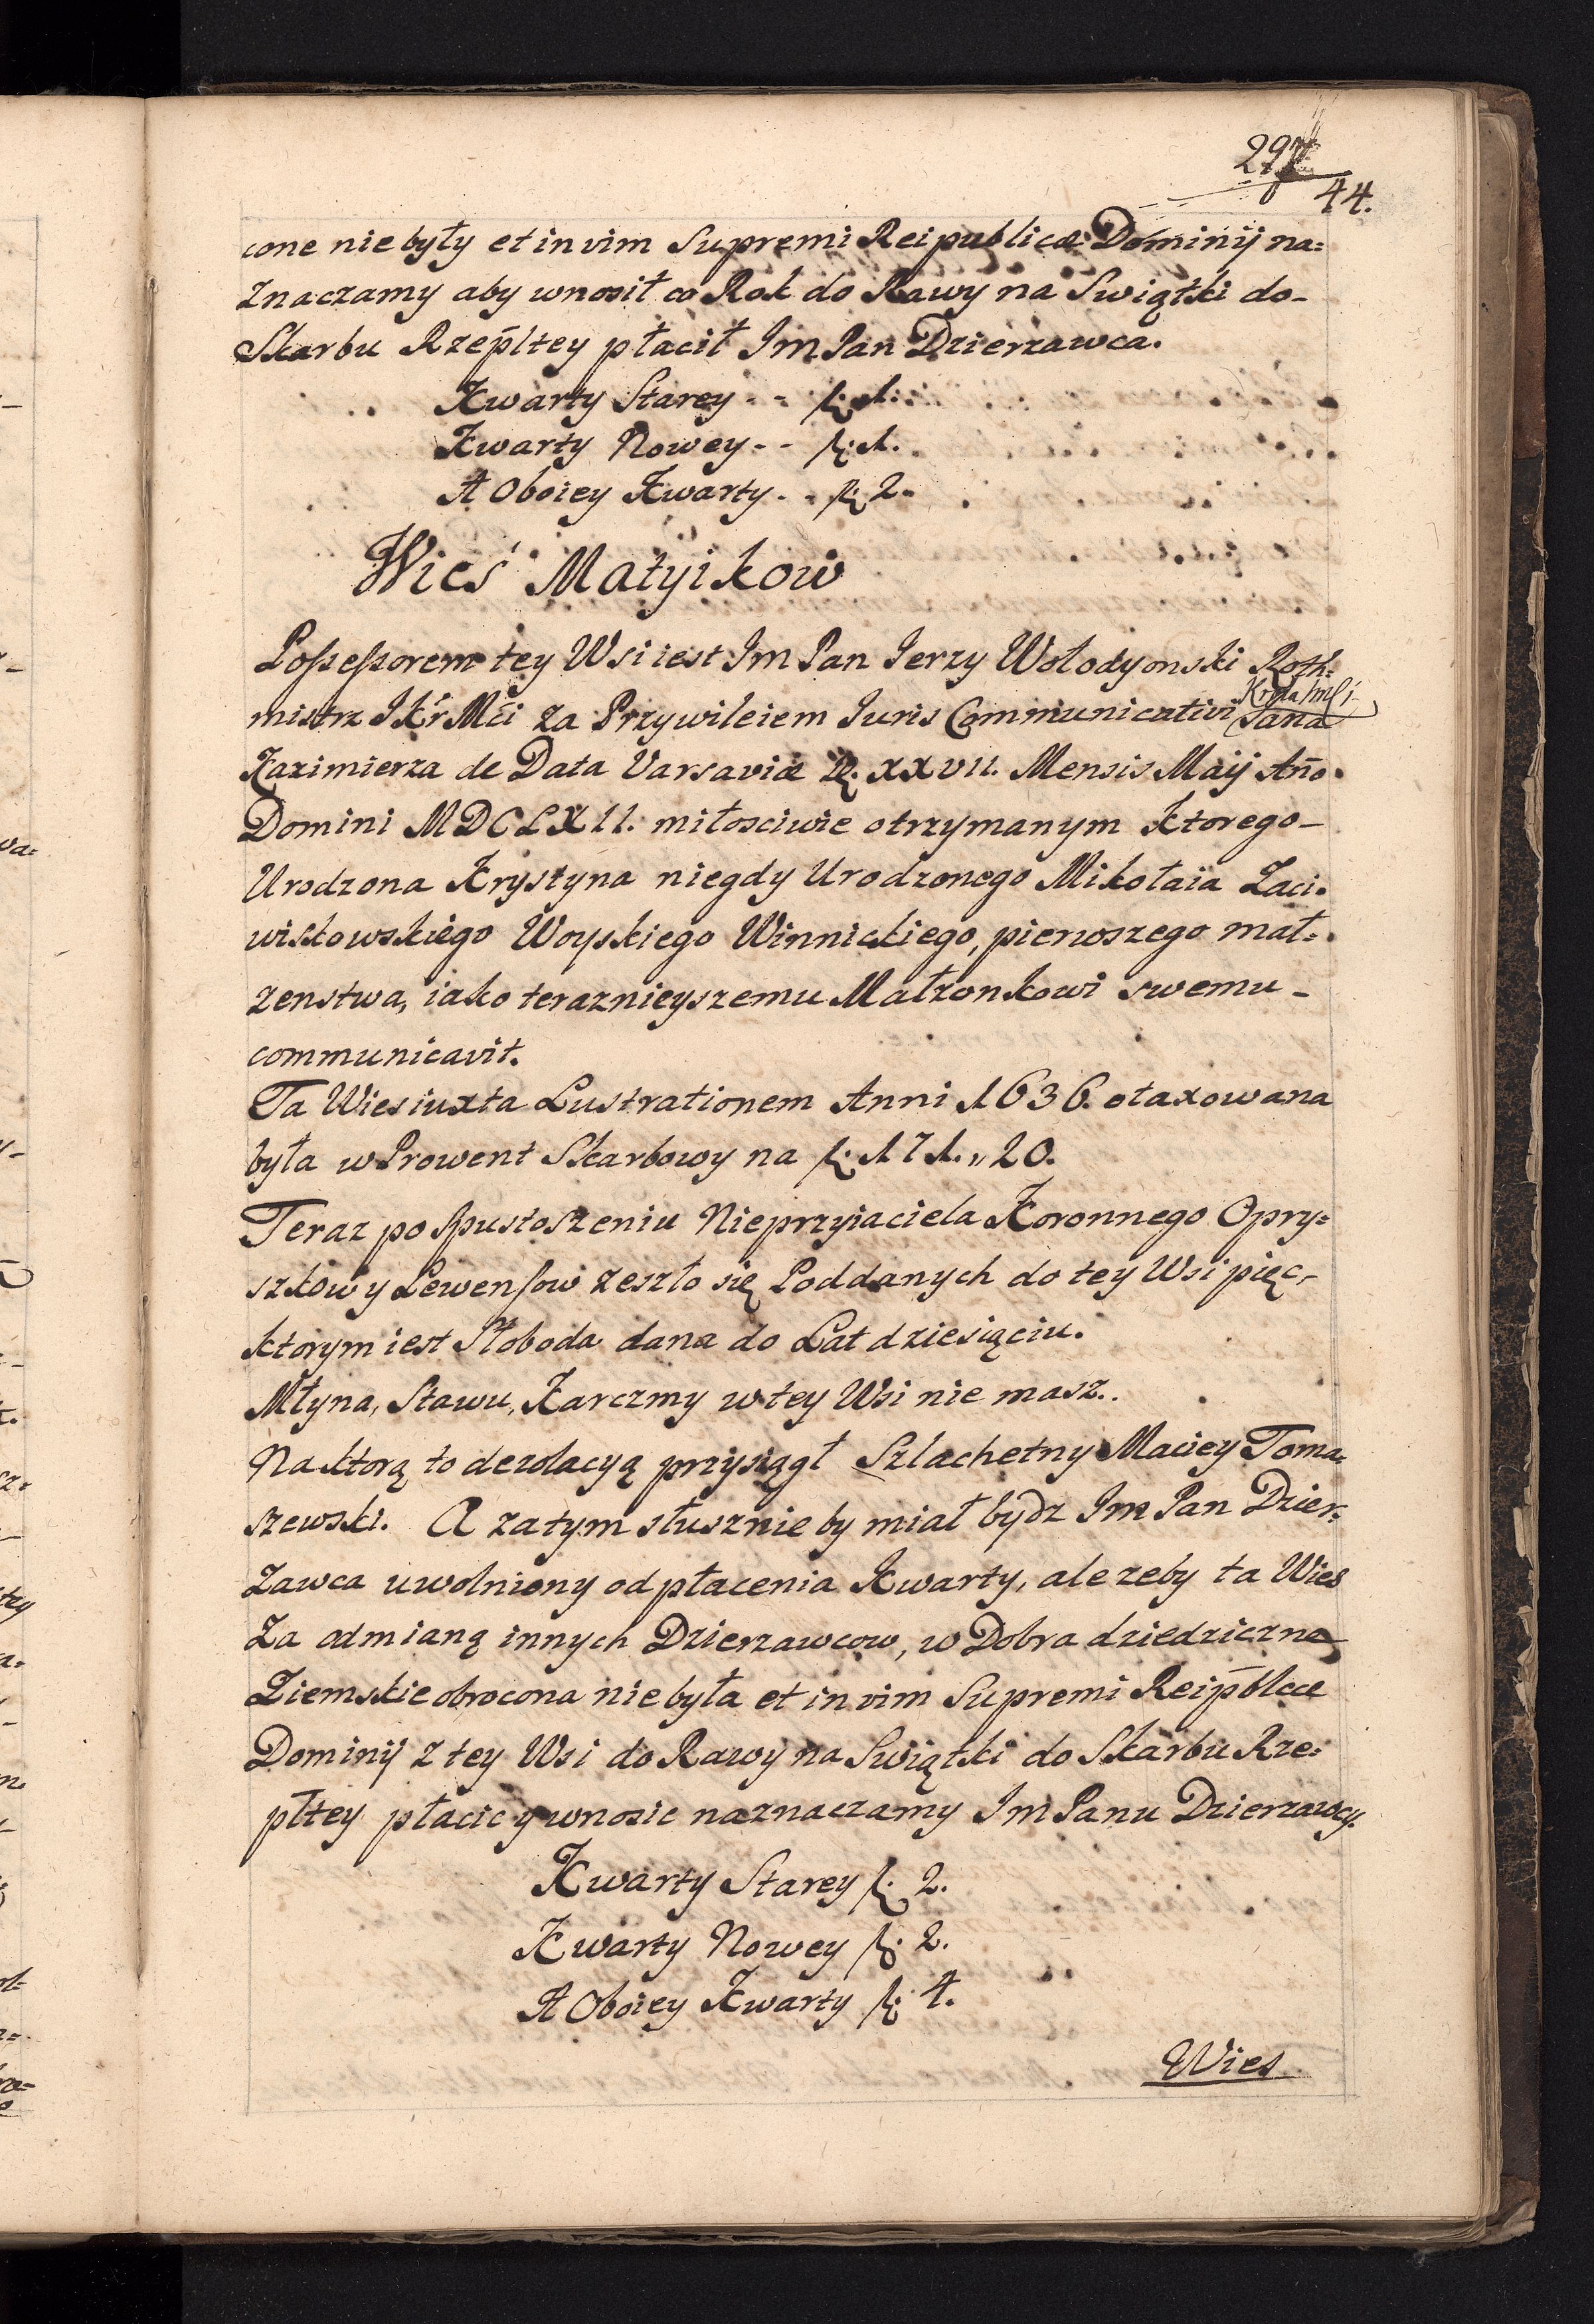 44.
cone nie były et in vim Supremi Reipublicæ Dominij na=
znaczamy aby wnosił co Rok do Rawy na Swiątki do-
Skarbu Rzepltey płacił Im Pan Dzierzawca.
Kwarty Starey - - f: 1.
Kwarty Nowey - - f: 1.
A Oboiey Kwarty - - f: 2.
Wieś Matyikow
Possessorem tey Wsi iest Im Pan Ierzy Wołodyonski Roth=
Krola Imści
mistrz JKr Mći za Przywileiem Iuris Communicativi Jana
Kazimierza de Data Varsaviæ D. XXVII. Mensis Maij Ano.
Domini MDCLXII. miłosciwie otrzymanym Ktorego-
Urodzona Krystyna niegdy Urodzonego Mikołaia Zaci.
wiskowskiego Woyskiego Winnickiego, pierwszego mał=
zenstwa, iako teraznieyszemu Małzonkowi swemu-
communicavit.
Ta Wies iuxta Lustrationem Anni 1636. otaxowana
była w Prowent Skarbowy na f: 171.,,20.
Teraz po spustoszeniu Nieprzyiaciela Koronnego Opry=
szkow y Lewensow zeszło się Poddanych do tey Wsi pięc,-
ktorym iest Słoboda dana do Lat dziesiąciu.
Młyna, Stawu, Karczmy w tey Wsi nie masz..
Na ktorą to dezolacyą przysiągł Szlachetny Maciey Toma=
szewski. A zatym słusznie by miał bydz Im Pan Dzier=
zawca uwolniony od płacenia Kwarty, ale zeby ta Wies
Za odmianą innych Dzierzawcow, w Dobra dziedziczne
Ziemskie obrocona nie była et in vim Supremi Reipblcæ
Dominij z tey Wsi do Rawy na Swiątki do Skarbu Rze=
pltey płacic y wnosic naznaczamy Im Panu Dzierzawcy.
Kwarty Starey f: 2.
Kwarty Nowey f: 2.
A Oboiey Kwarty f: 4.
Wies